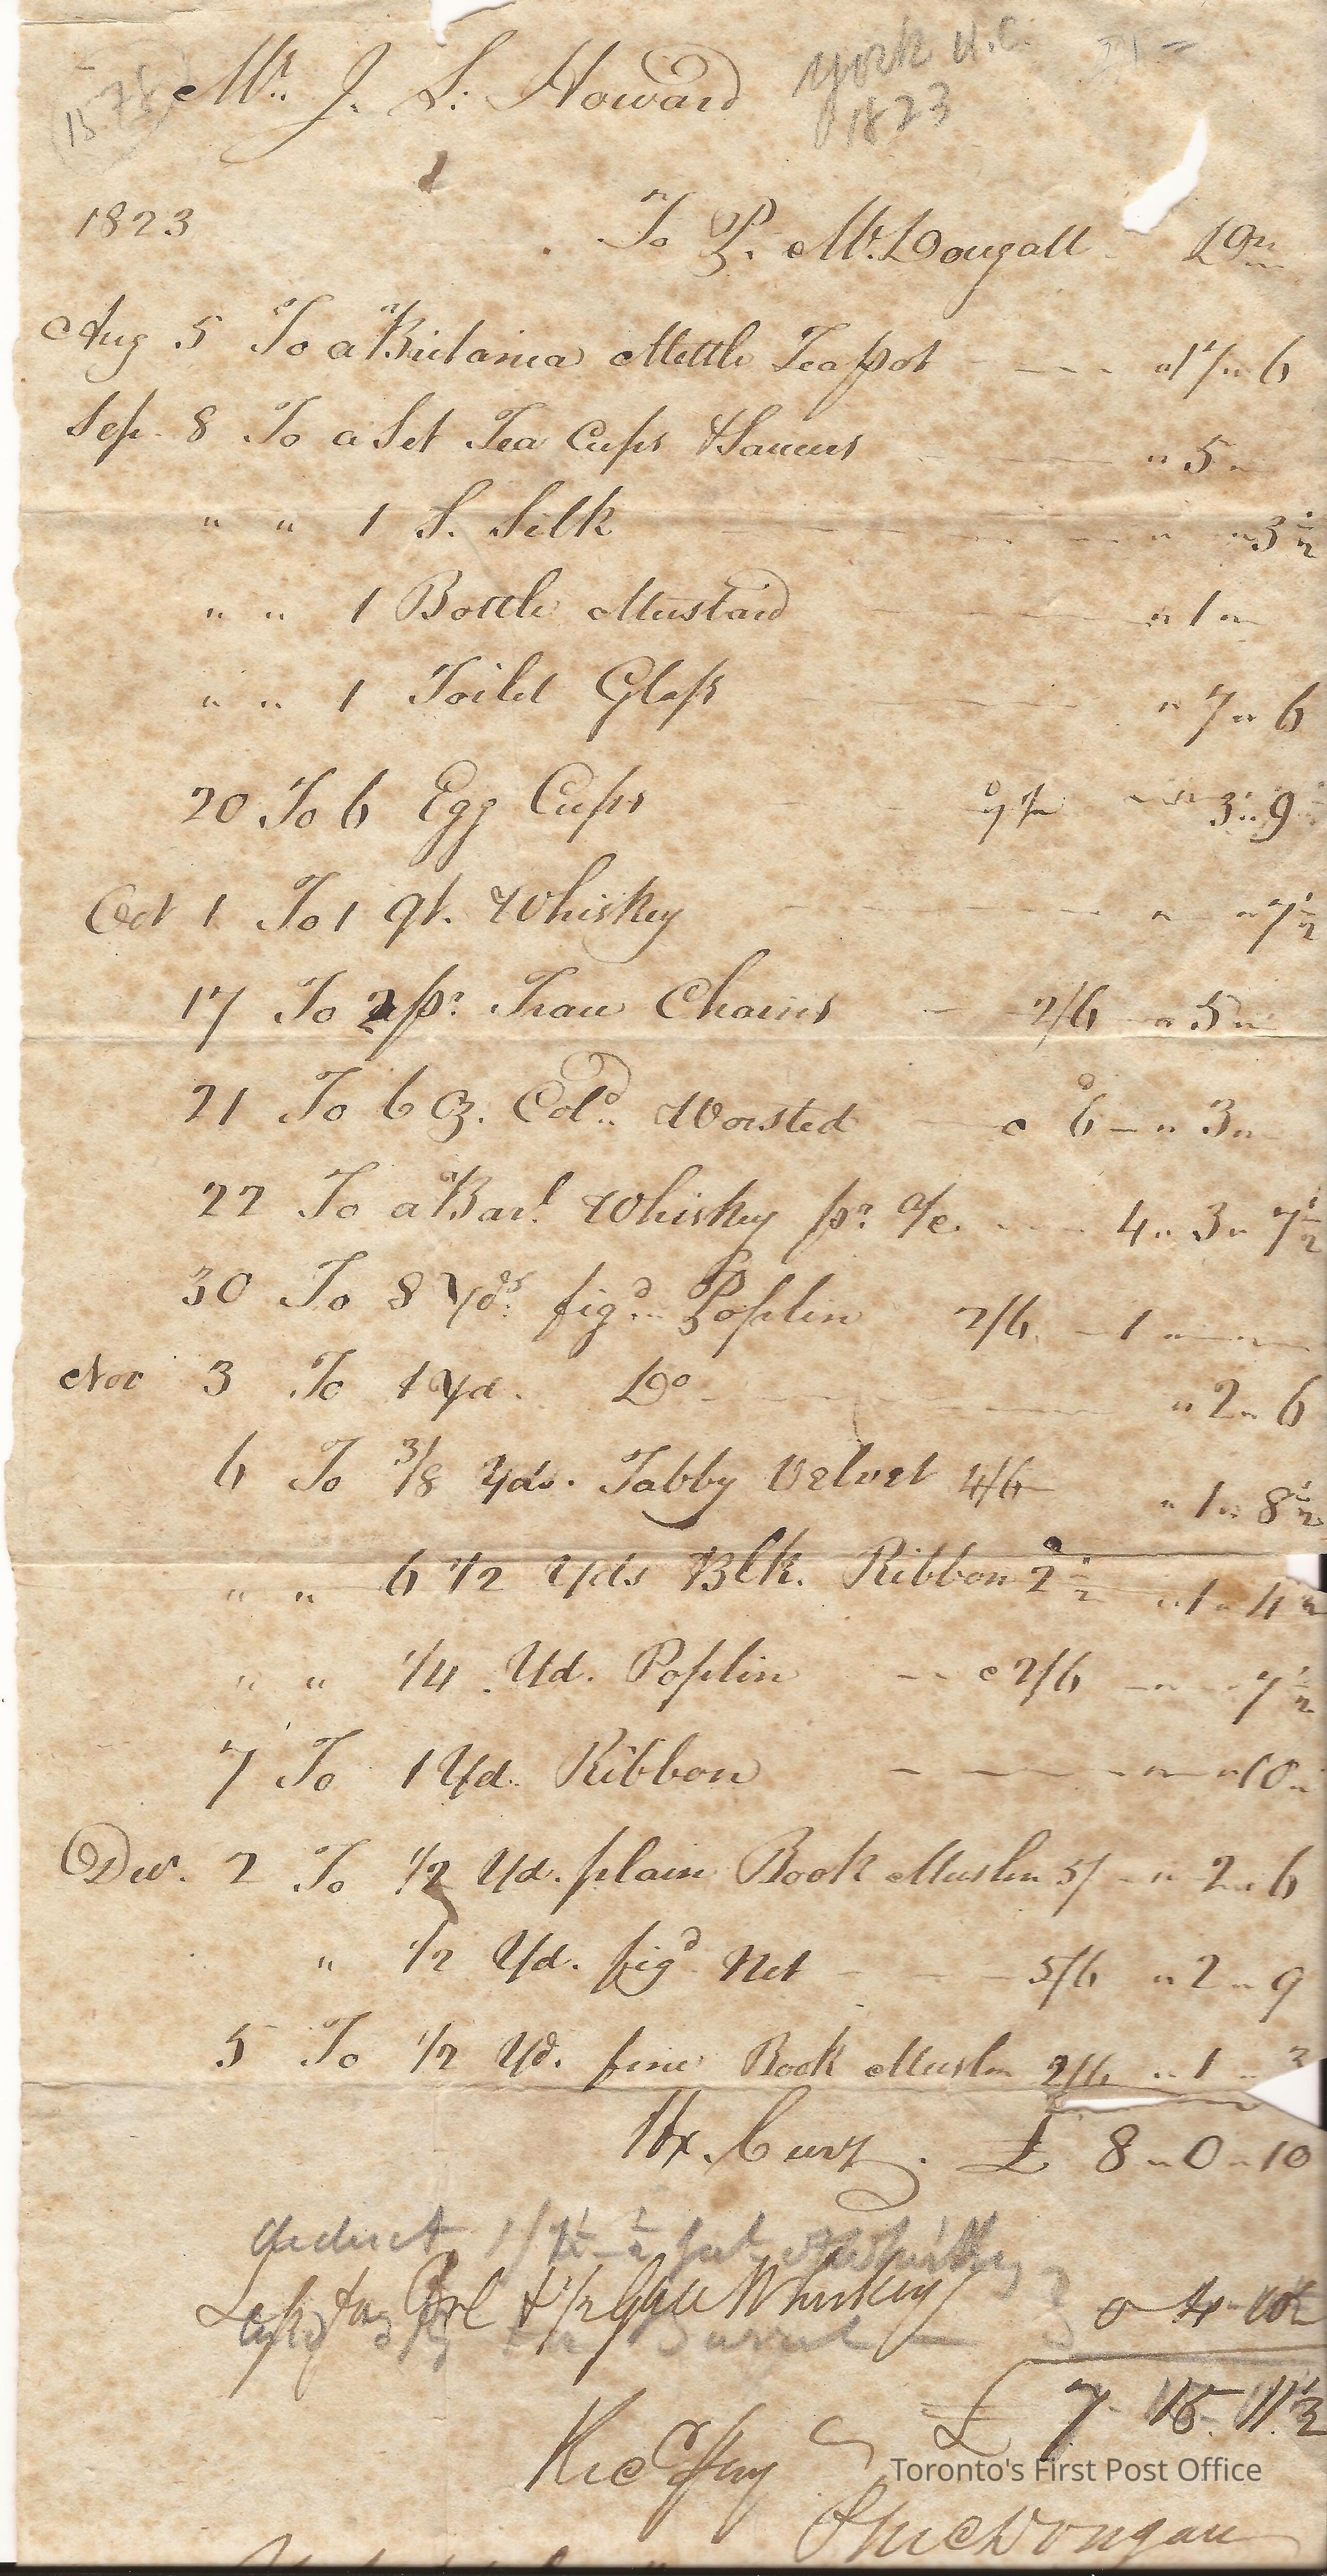 Mr. J. S. Howard
York U.C.
1823
1823 To P. McDougall Dr.
Aug 5 To a Britania Mettle Teapot " 17 " 6
Sep. 8 To a Set Tea Cups & Saucers " 5 "
" " 1 S. Silk " " 3 1/2
" " 1 Bottle Mustard " 1 "
" " 1 Toilet Glass " 7 " 6
20 To 6 Egg Cups 7 1/2 " 3 " 9
Oct 1 To 1 qt. Whiskey " " 7 1/2
17 To 2 pr. Trace Chains 2/6 " 5 "
21 To 6 oz. Cold. Worsted 6 " 3 "
22 To a Barl. Whiskey pr. a/c. 4 " 3 " 7 1/2
30 To 8 Yds. figd. Poplin 2/6 1 "
Nov 3 To 1 Yd. Do " 2 " 6
6 To 3/8 Yds. Tabby Velvet 4/6 " 1 " 8 1/2
" " 6 1/2 Yds Blk. Ribbon 2 1/2 " 1 " 4
" " 1/4 Yd. Poplin 2/6 " " 7 1/2
7 To 1 Yd. Ribbon " " 10
Dec. 2 To 1/2 Yd. plain Book Muslin 5/ " 2 " 6
" 1/2 Yd. figd. Net 5/6 " 2 " 9
5 To 1/2 Yd. fine Book Muslin 2/6 " 1 " 3
Hx. Curr £ 8 " 0 " 10
deduct
Less for Brl & 1/2 Gall Whiskey 0 4
£ 7 15 11 1/2
Toronto's First Post Office
P McDougall